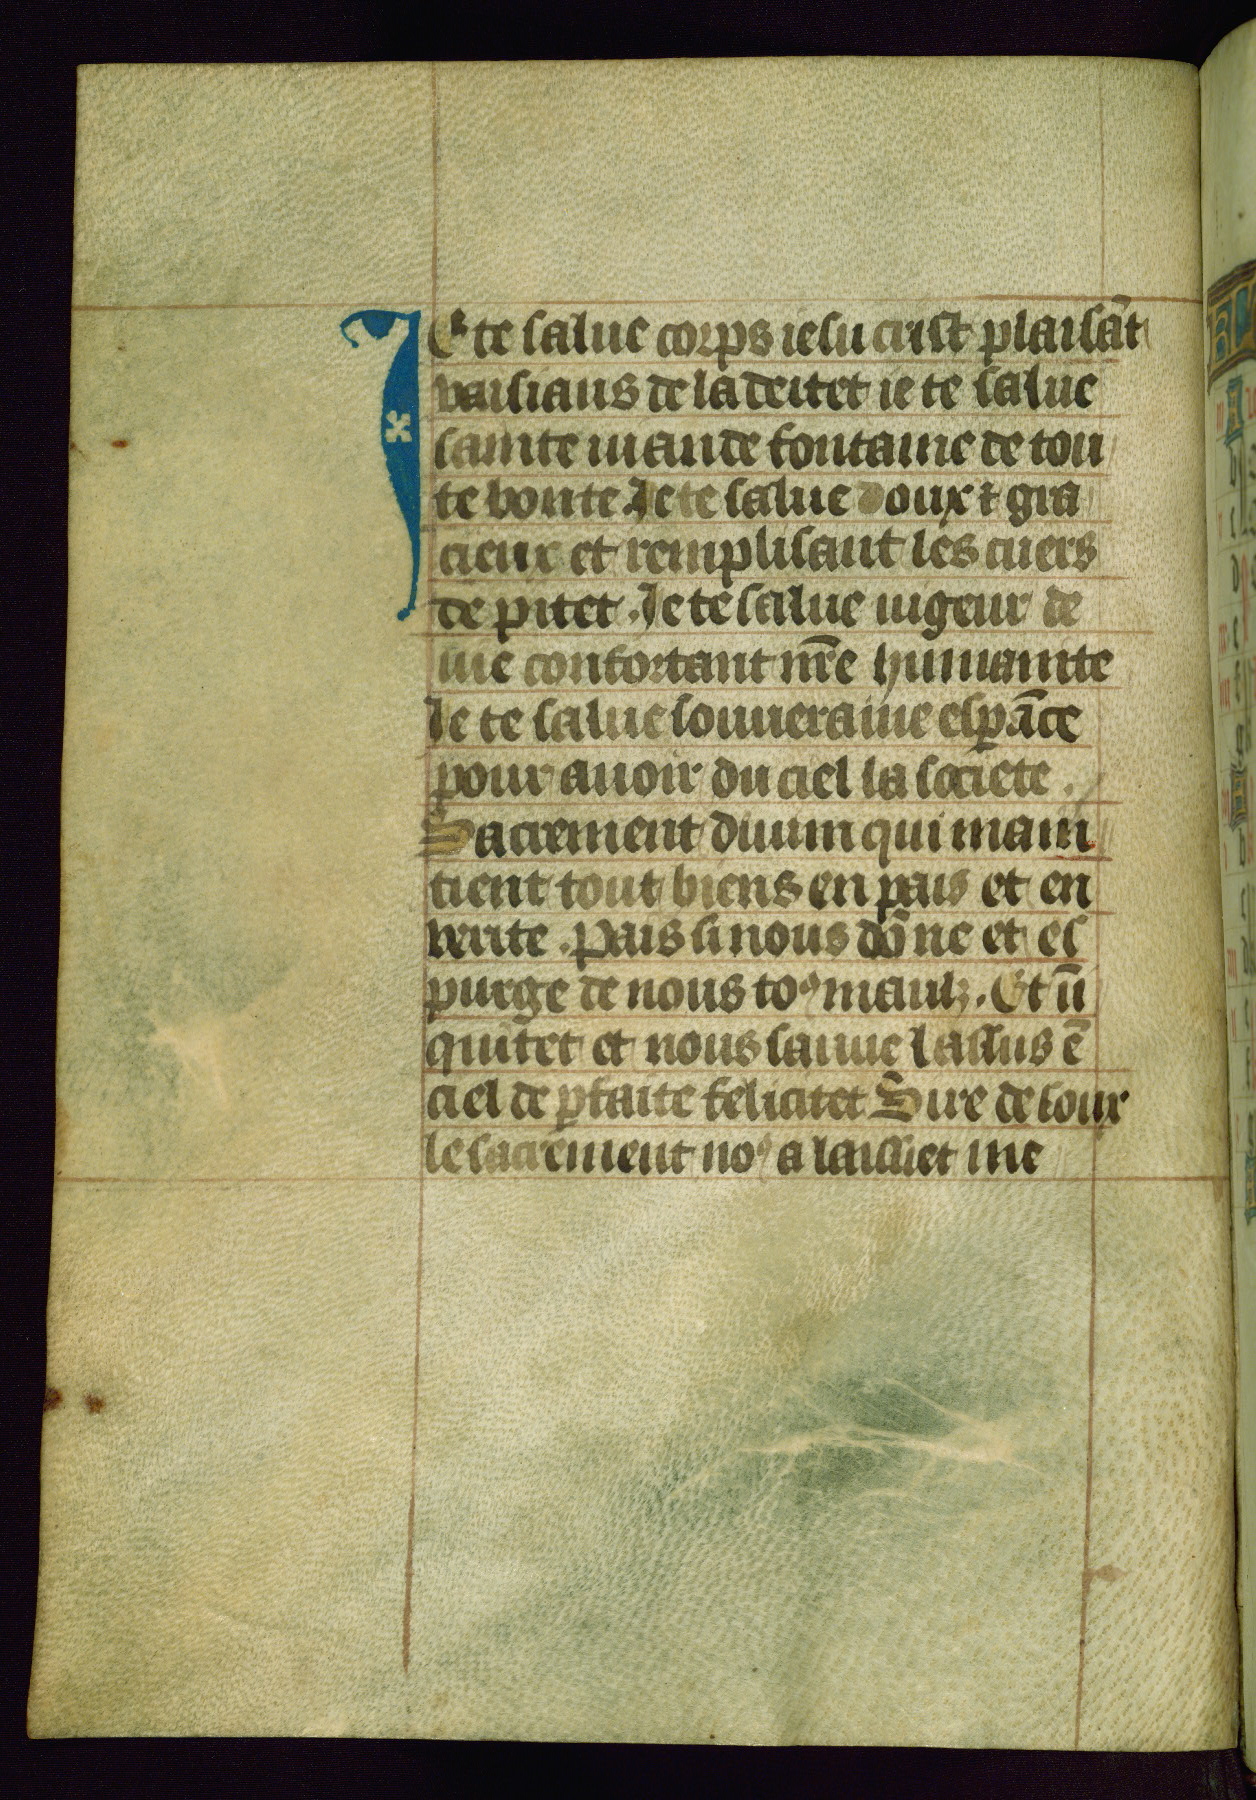 JE te salue corps iesu crist plaisāt
vaisiaus de la deitet ie te salue
sainte uiande fontaine de tou
te bonte Je te salue doux ⁊ gra
cieux et remplisant les cuers
de pitet . Je te salue uigeur de
uie confortant nr̄e humanite
Je te salue souueraine esp̄āce
pour auoir du ciel la societe .
Sacrement diuum qui main
tient tout biens en pais et en
verite . Pais si nous dōne et es
purge de nous toꝰ maulz . Et ū
quitet et nous sauue lassus ē
ciel de pfaite felicitet Sire de tour
le sacrement noꝰ a laissiet me